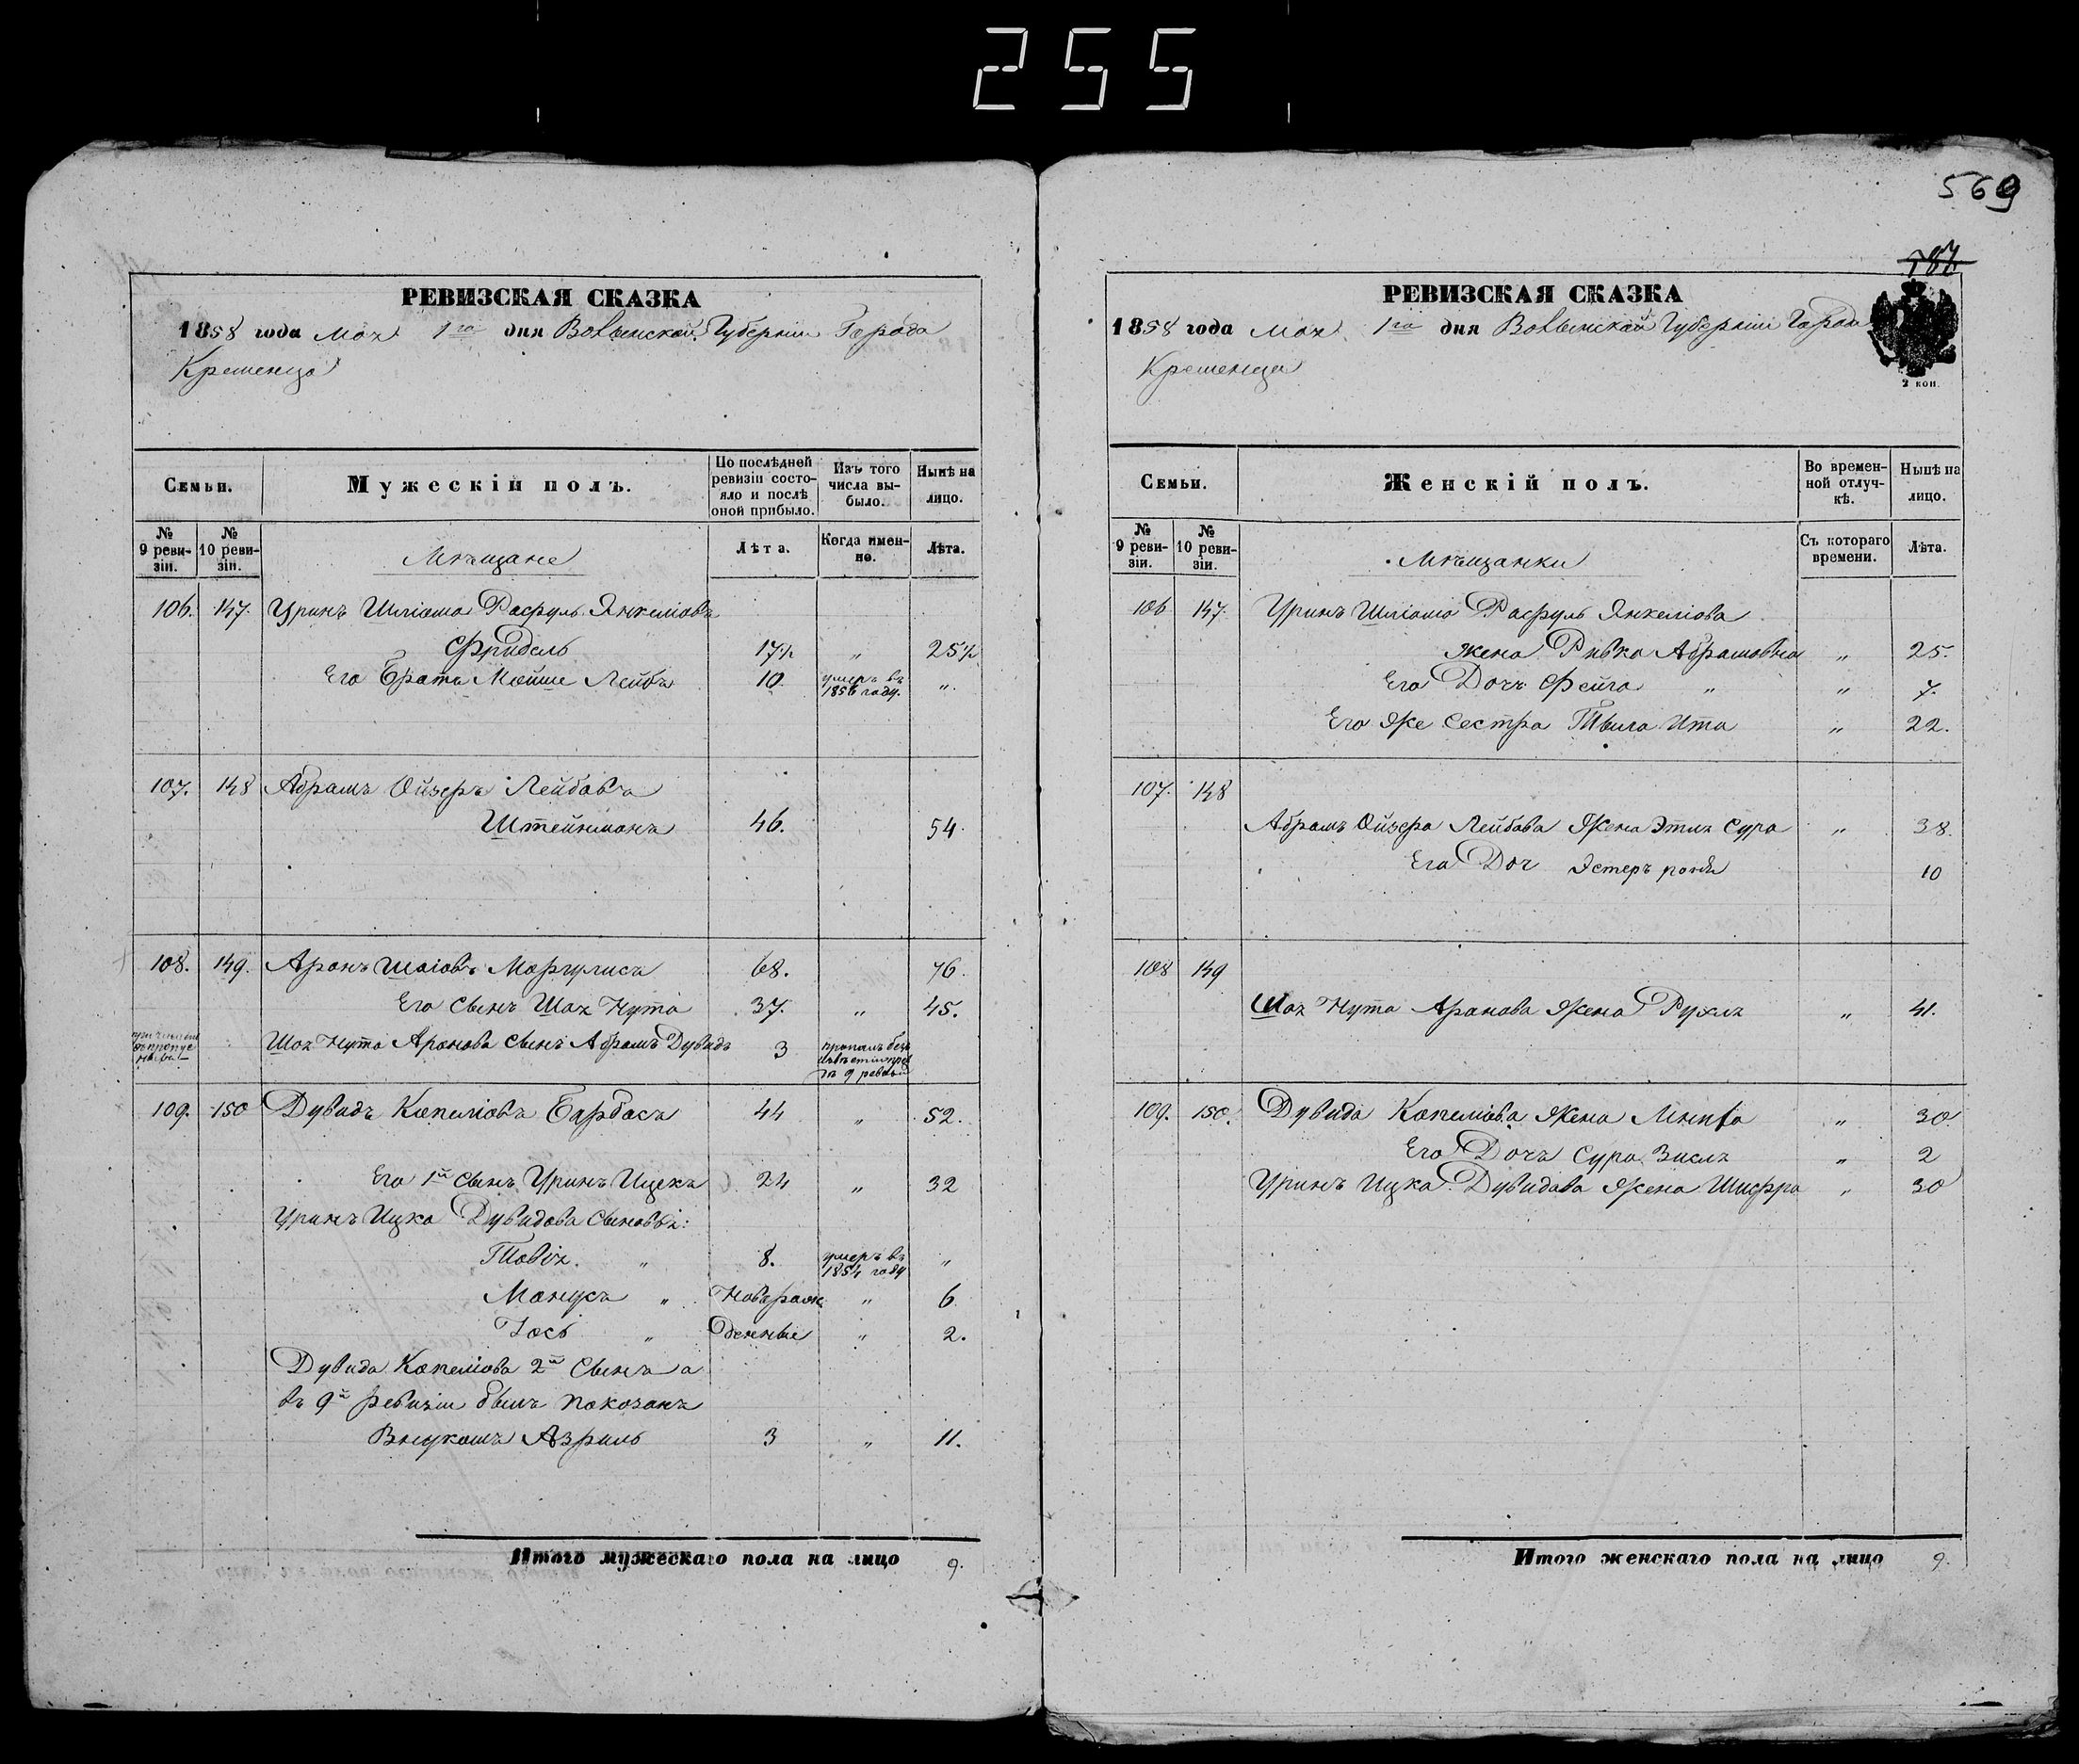 255
569
787
РЕВИЗСКАЯ СКАЗКА
1858 года мая 1го дня Волынской Губерніи Города
Кременца
Семьи.
Мужескій полъ.
По послѣдней ревизіи состояло и послѣ оной прибыло.
Изъ того числа выбыло.
Нынѣ на лицо.
№ 9 ревизіи.
№ 10 ревизіи.
Мѣщане
Лѣта.
Когда именно.
Лѣта.
106. 147. Уринъ Шліома Расфуль Янкеліовъ
Фридель 17½ „ 25½
Его Братъ Мойше Лейбъ 10 умеръ въ 1856 году. „
107. 148 Абрамъ Ойзеръ Лейбовъ
Штейнманъ 46. 54
108. 149. Аронъ Шаіовъ Моргулисъ 68. 76.
Его сынъ Шая Нута 37. „ 45.
Шоя Нута Аронова сынъ Абрамъ Дувидъ 3 пропалъ безъ
9 ревизіи
109. 150 Дувидъ Копеліовъ Барбасъ 44 „ 52.
Его 1й сынъ Уринъ Ицекъ 24 „ 32
Уринъ Ицка Дувидова сыновья:
Товія „ 8. умеръ въ 1854 году „
Манусъ „ Новорож „ 6
Іось „ денные „ 2.
Дувида Копеліова 2й сынъ а
въ 9й ревизіи былъ показанъ
Внукомъ Азриль 3 „ 11.
Итого мужескаго пола на лицо 9.
РЕВИЗСКАЯ СКАЗКА
1858 года мая 1го дня Волынской Губерніи Города
Кременца
2 коп.
Семьи.
Женскій полъ.
Во временной отлучкѣ.
Нынѣ на лицо.
№ 9 ревизіи.
№ 10 ревизіи.
Мѣщанки
Съ котораго времени.
Лѣта.
106 147. Уринъ Шліомо Расфуль Янкеліова
жена Ривка Абрамовна „ 25.
Его Дочь Фейга „ „ 7.
Его же сестра Твила Ита „ 22.
107. 148
Абрамъ Ойзера Лейбова Жена Этля Сура „ 38.
Его Доч Эстеръ 10
108 149
Шоя Нута Аронова Жена Рухля „ 41.
109. 150. Дувида Копеліова Жена „ 30
Его Дочь Сура Зисля „ 2
Уринъ Ицка Дувидова Жена Шифра „ 30
Итого женскаго пола на лицо 9.